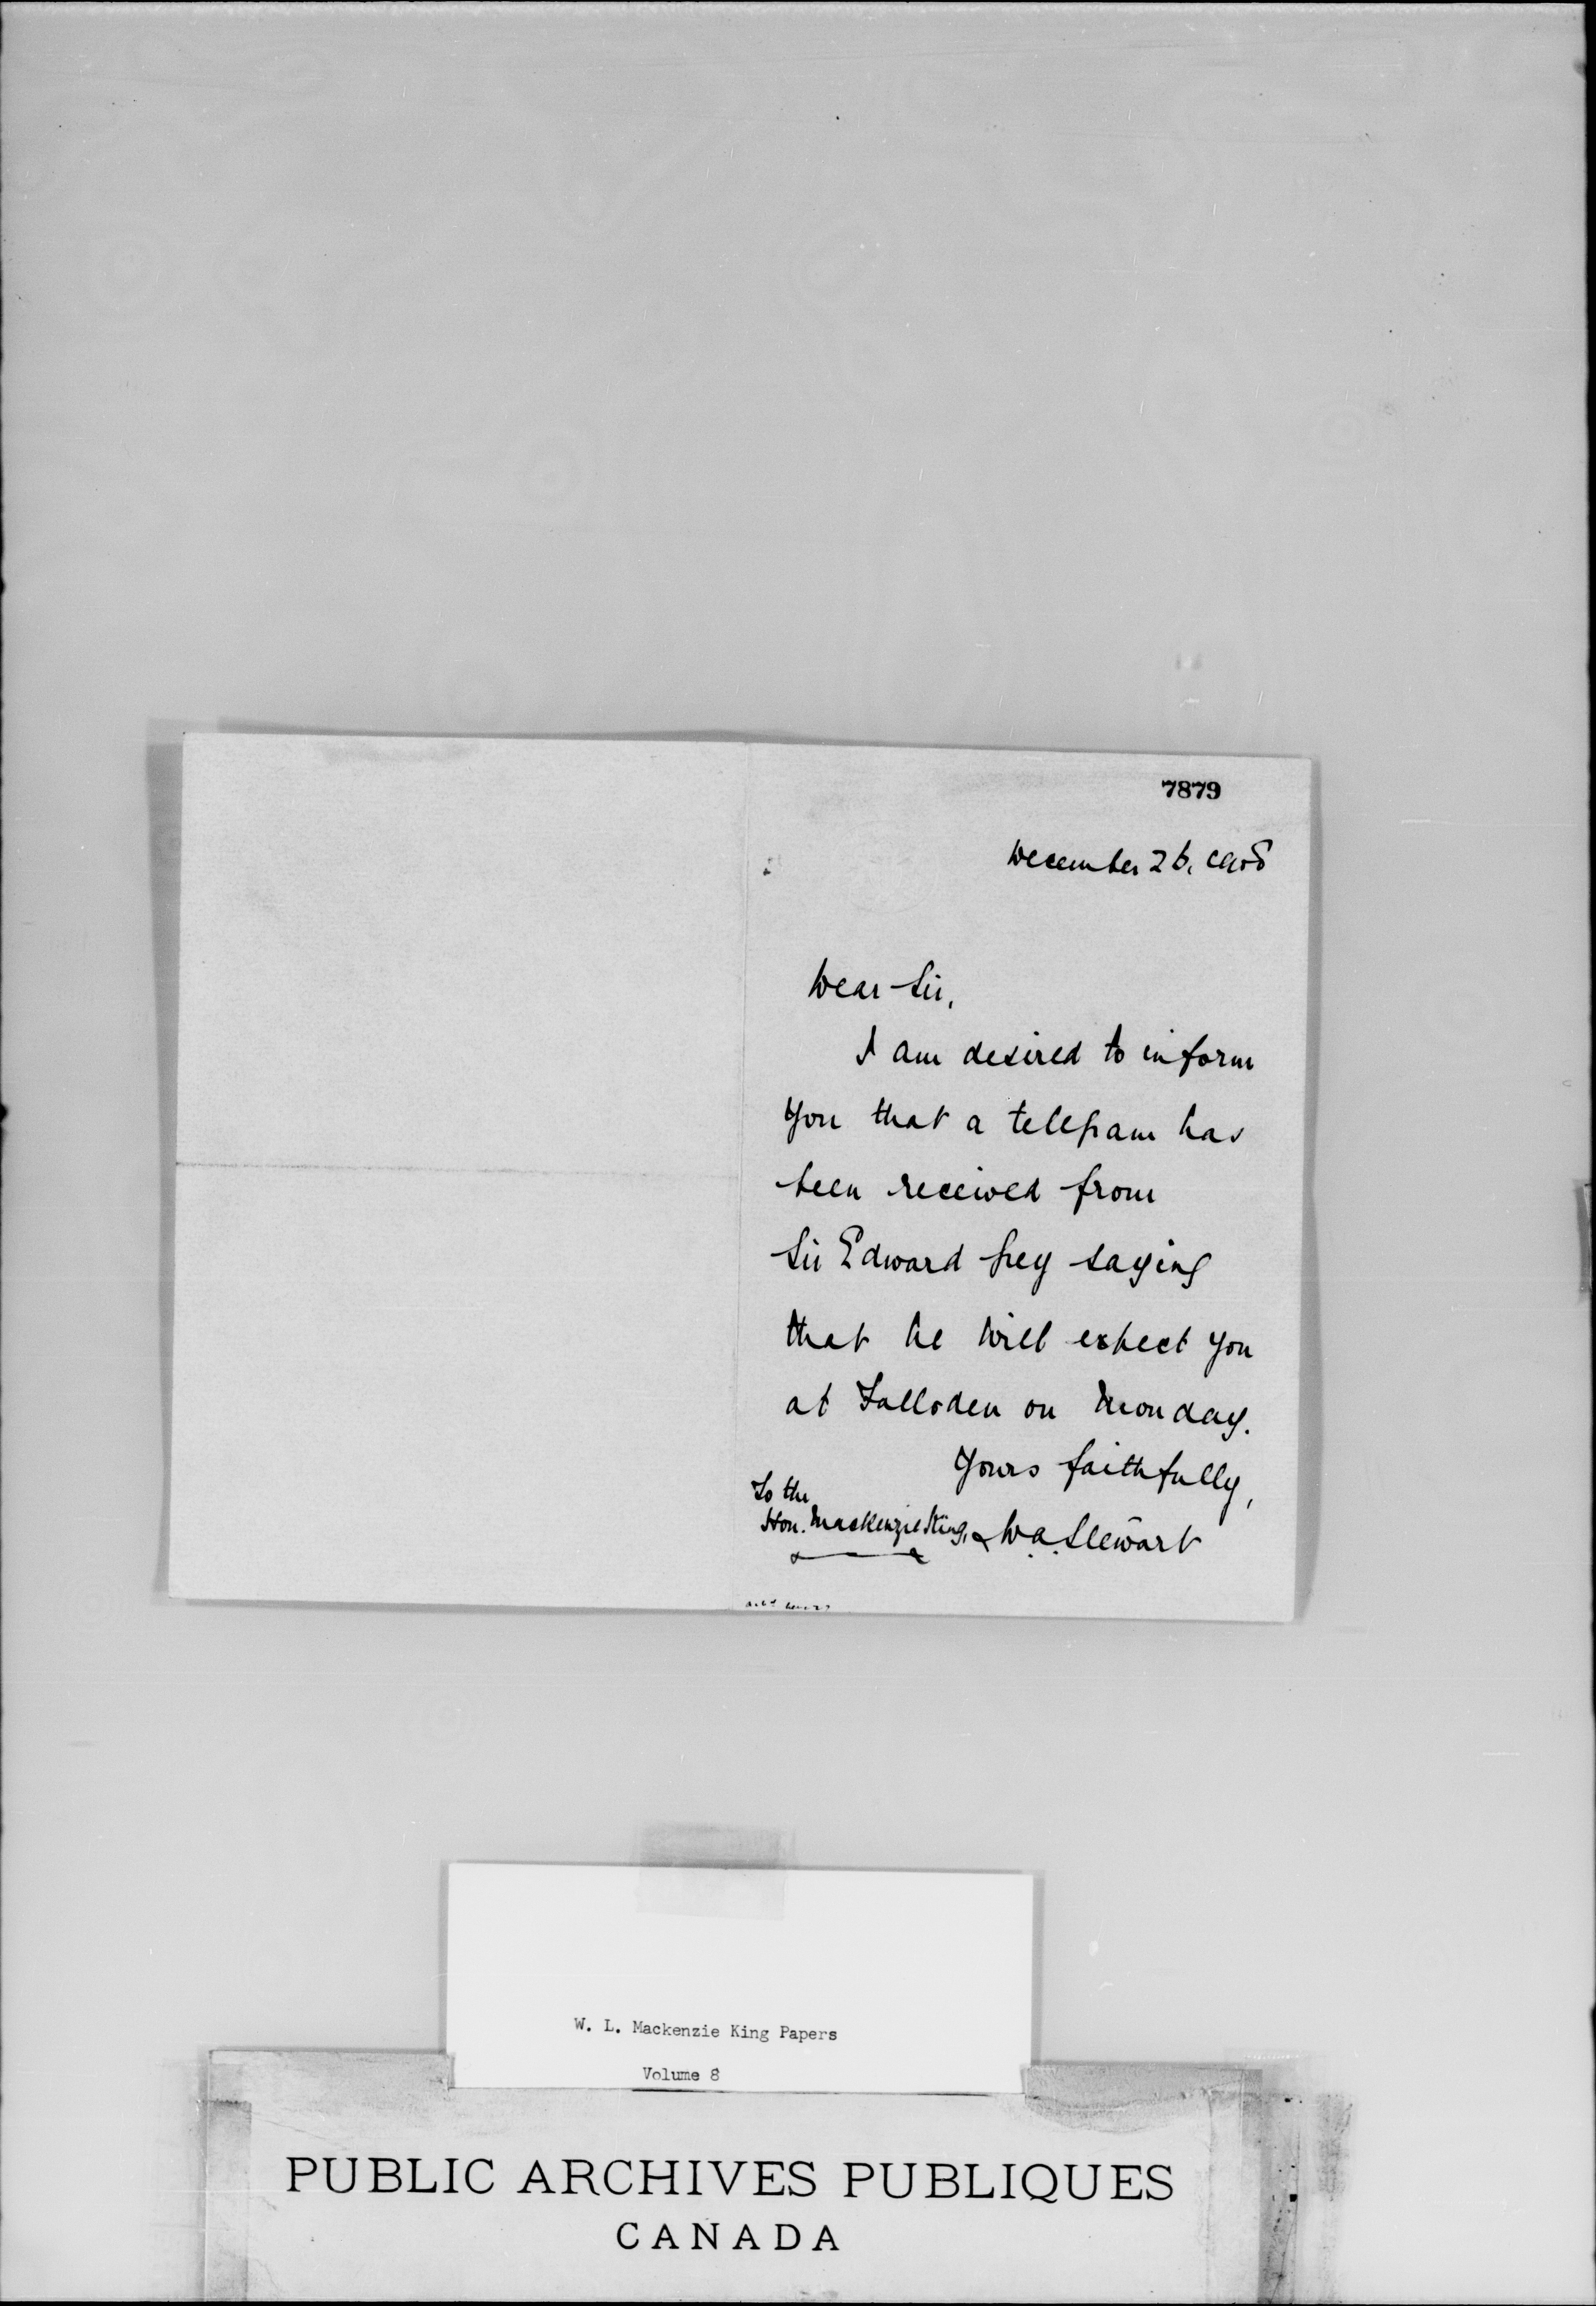 7879
December 26. 1908
Dear Sir,
I am desired to inform
you that a telegram has
been received from
Sir Edward Grey saying
that he will expect you
at Falloden on Monday.
Yours faithfully,
To the
Hon. Mackenzie King.
W.A. Stewart
W. L. Mackenzie King Papers
Volume 8
PUBLIC ARCHIVES PUBLIQUES
CANADA